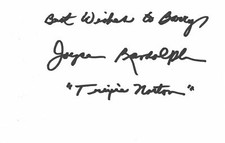 Best Wishes to Barry
Joyce Randolph
"Trixie Norton"